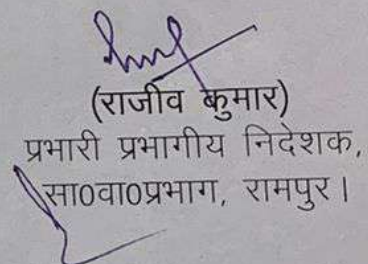 (राजीव कुमार)
प्रभारी प्रभागीय निदेशक,
सा0वा0प्रभाग, रामपुर।